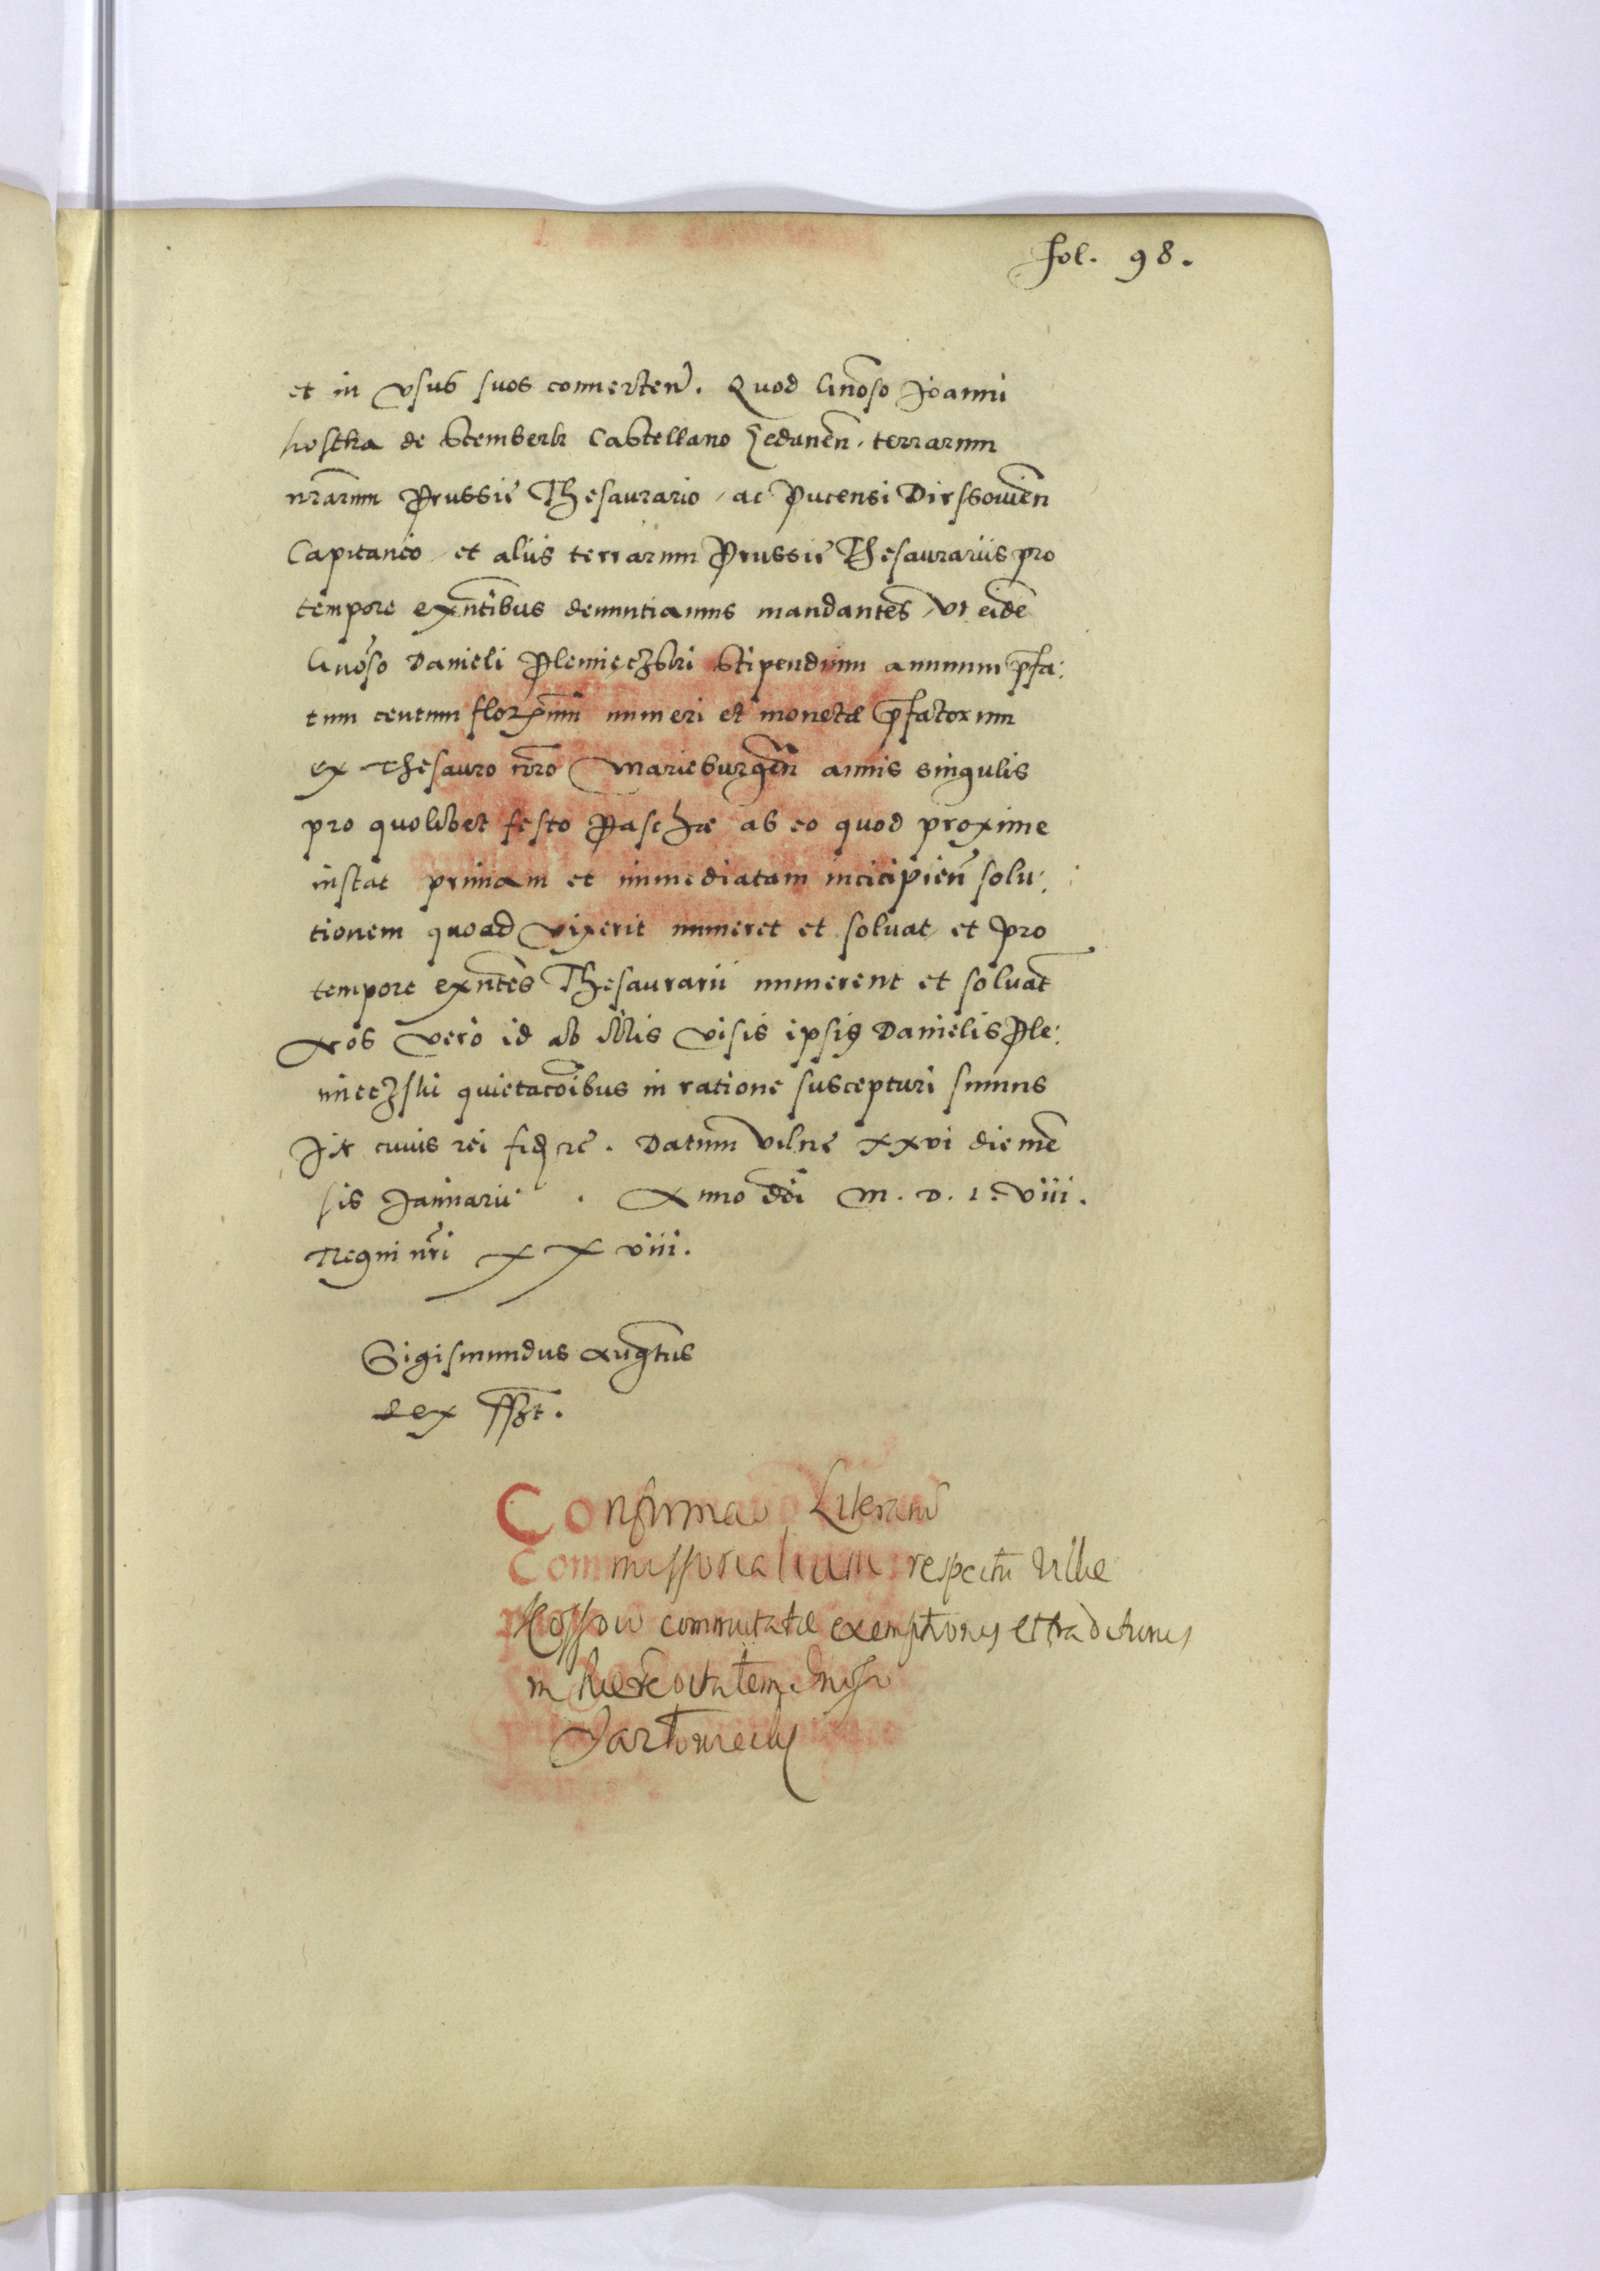 fol. 98.
et in usus suos conuerten̄. Quod Gn̄oso Joanni
kostka de Stemberk Castellano Gedanen̄. terrarum
nr̄arum Prussię Thesaurario, ac Pucensi Dirssouien̄
Capitaneo, et alijs terrarum Prussię Thesaurarijs pro
tempore exn̄tibus denuntiamus mandantes, Vt eidē
Gn̄oso Danieli Plemięczski Stipendium annuum p̄fa:
tum centum florenorum numeri et monetæ p̄fatorum
ex Thesauro nr̄o Marieburgen̄ annis singulis
pro quolibet festo Paschæ ab eo quod proxime
instat primam et immediatam incicipien̄ solu:
tionem quoad vixerit numeret et soluat, et pro
tempore exn̄tes Thesaurarii numerent et soluāt
Nos vero id ab illis visis ipsius Danielis Ple:
mieczski quietacōibus in ratione suscepturi sumus
In cuius rei fidē etc. Datum Vilnę xxvi die mē
sis Januarii. Anno dn̄i M. D. L. viii.
Regni nr̄i xxviii.
Sigismundus Augustus
Rex sszt.
Confirmao Literarū
Commissorialium respectu Villæ
commutatæ exemptionis et traditionis
in hæreditatem